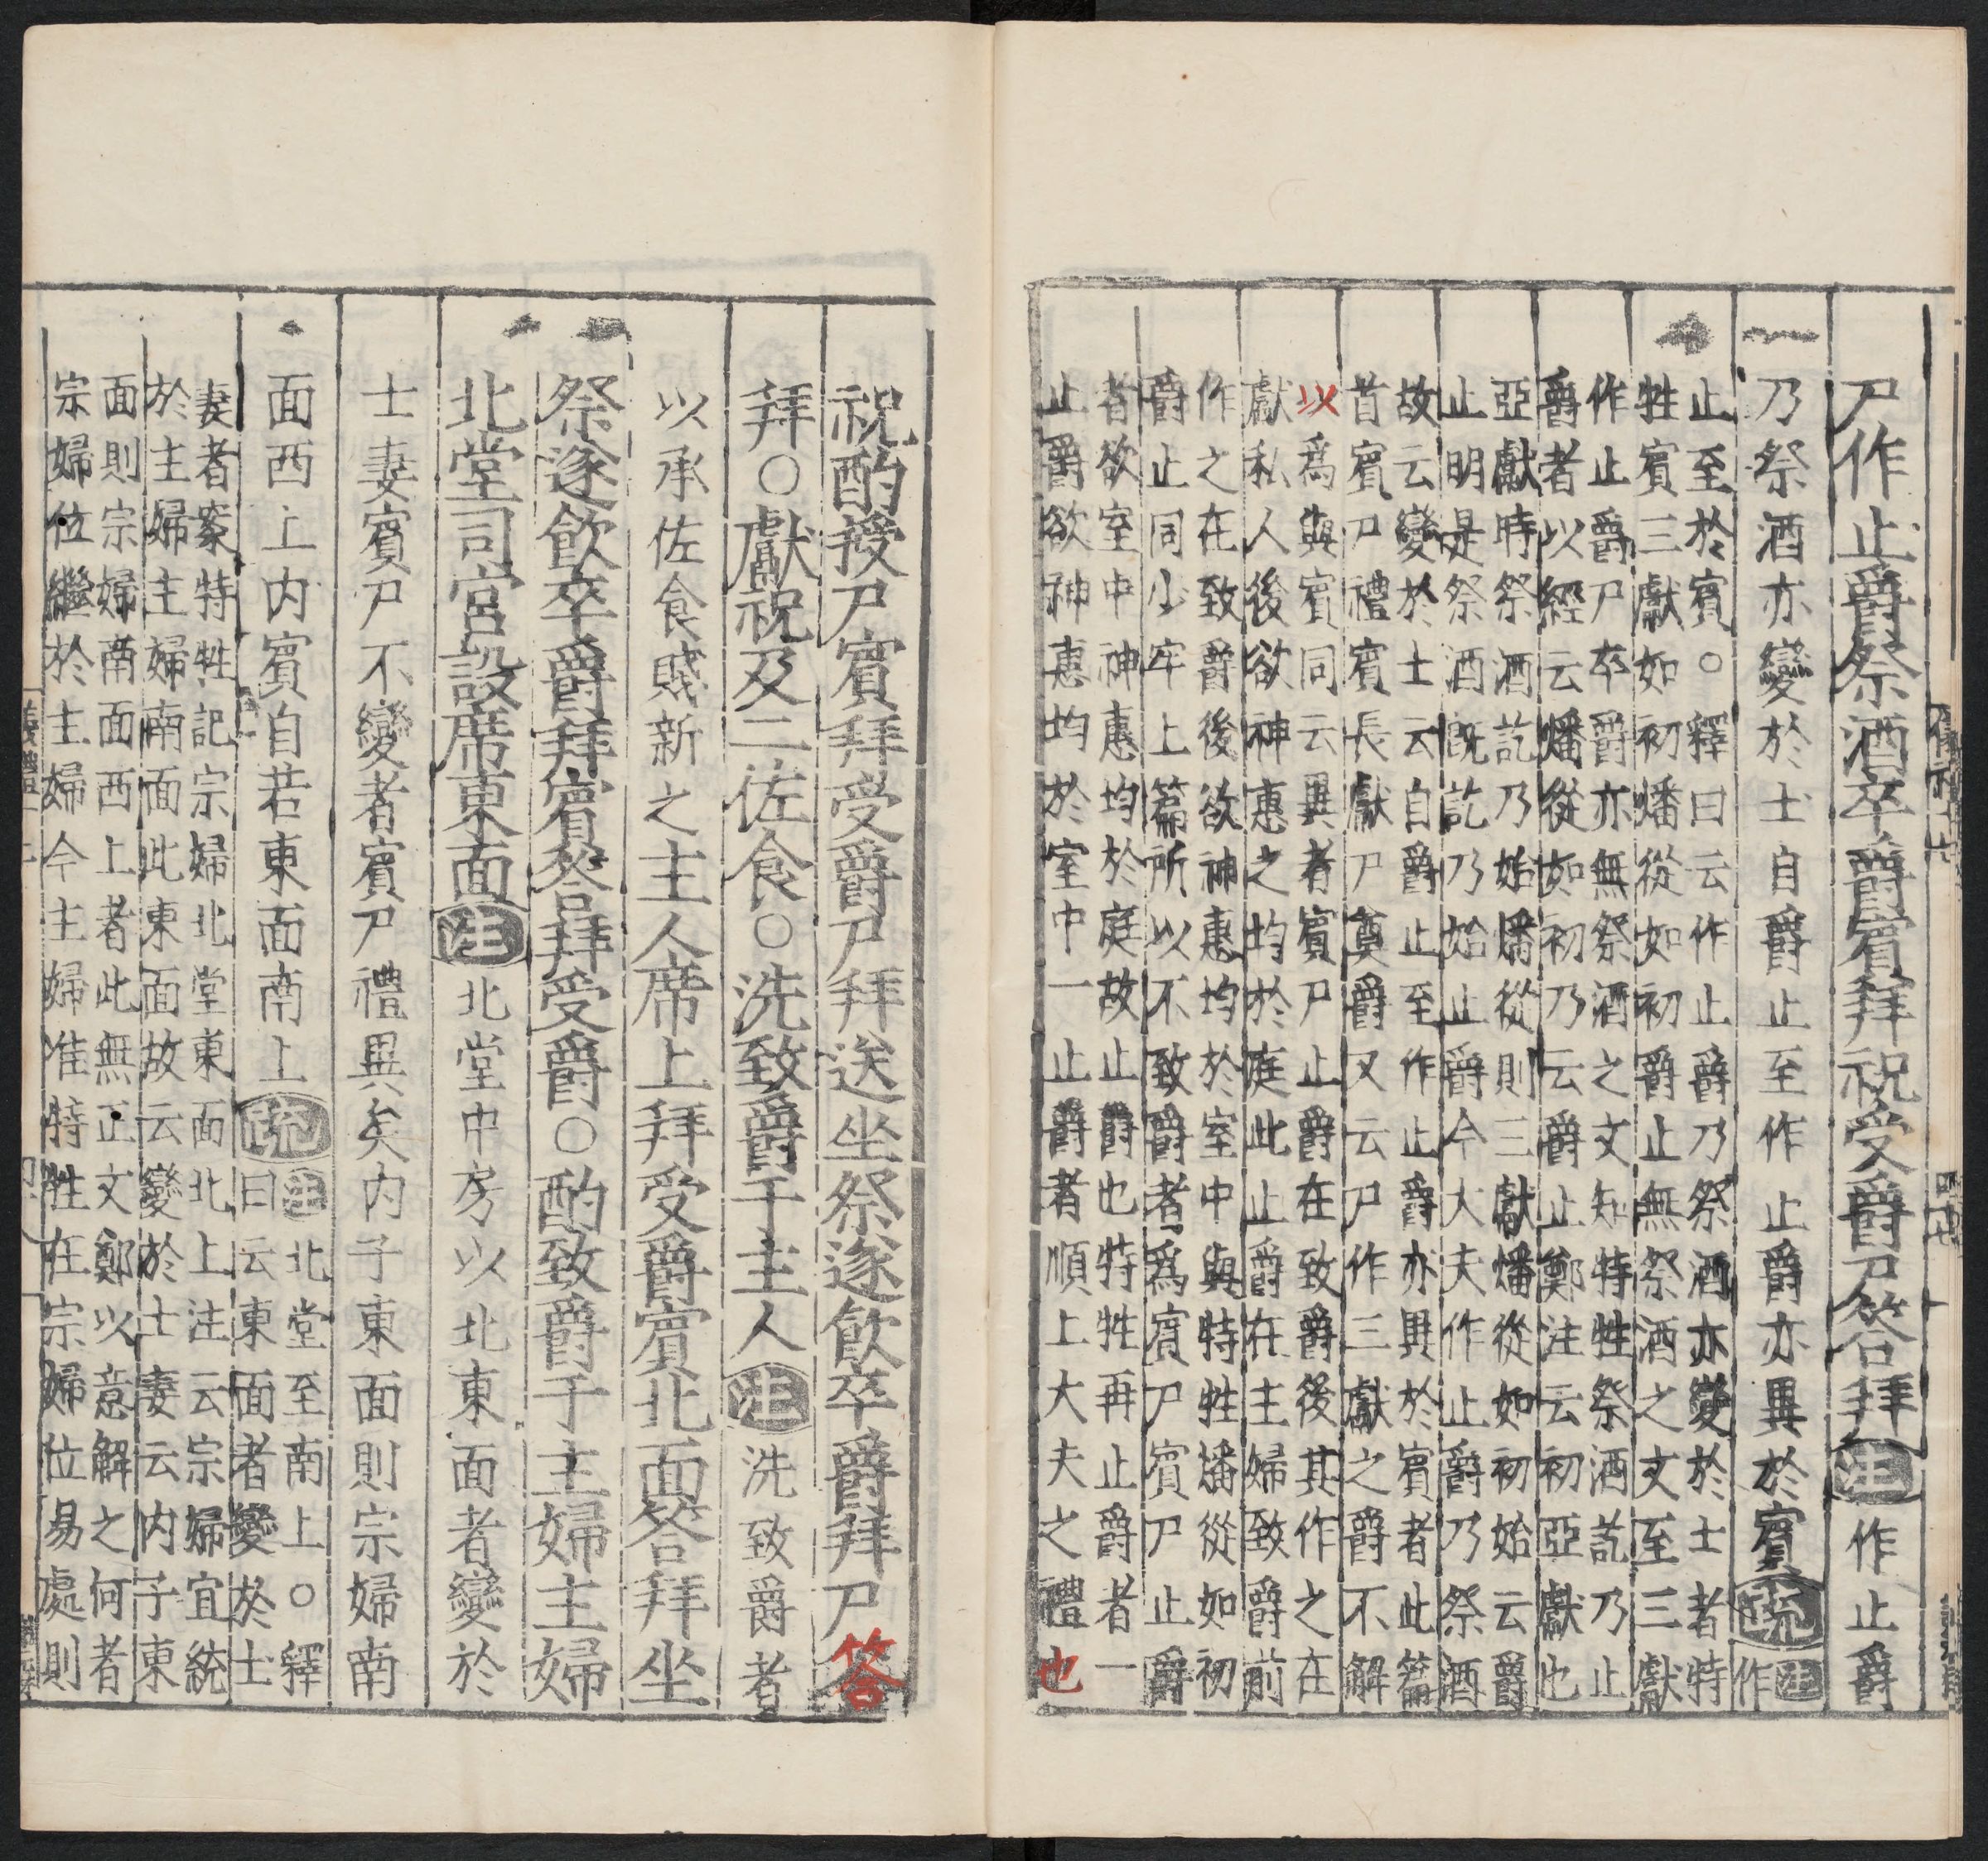 尸作止爵祭酒卒爵賓拜祝受爵尸答拜注作止爵
乃祭酒亦變於士自爵止至作止爵亦異於賓疏注作
止至於賓○釋曰云作止爵乃祭酒亦變於士者特
牲賓三獻如初燔從如初爵止無祭酒之文至三獻
作止爵尸卒爵亦無祭酒之文知特牲祭酒訖乃止
爵者以經云燔從如初乃云爵止鄭注云初亞獻也
亞獻時祭酒訖乃始燔從則三獻燔從如初始云爵
止明是祭酒旣訖乃始止爵今大夫作止爵乃祭酒
故云變於士云自爵止至作止爵亦異於賓者此篇
首賓尸禮賓長獻尸奠爵又云尸作三獻之爵不解
以爲與賓同云異者賓尸止爵在致爵後其作之在
獻私人後欲神惠之均於庭此止爵在主婦致爵前
作之在致爵後欲神惠均於室中與特牲燔從如初
爵止同少牢上篇所以不致爵者爲賓尸賓尸止爵
者欲室中神惠均於庭故止爵也特牲再止爵者一
止爵欲神惠均於室中一止爵者順上大夫之禮也
祝酌授尸賓拜受爵尸拜送坐祭遂飲卒爵拜尸答
拜○獻祝及二佐食○洗致爵于主人注洗致爵者
以承佐食賤新之主人席上拜受爵賓北面答拜坐
祭遂飲卒爵拜賓答拜受爵○酌致爵于主婦主婦
北堂司宮設席東面注北堂中房以北東面者變於
士妻賓尸不變者賓尸禮異矣内子東面則宗婦南
面西上内賓自若東面南上疏注北堂至南上○釋
曰云東面者變於士
妻者案特牲記宗婦北堂東面北上注云宗婦宜統
於主婦主婦南面此東面故云變於士妻云内子東
面則宗婦南面西上者此無正文鄭以意解之何者
宗婦位繼於主婦今主婦准特牲在宗婦位易處則